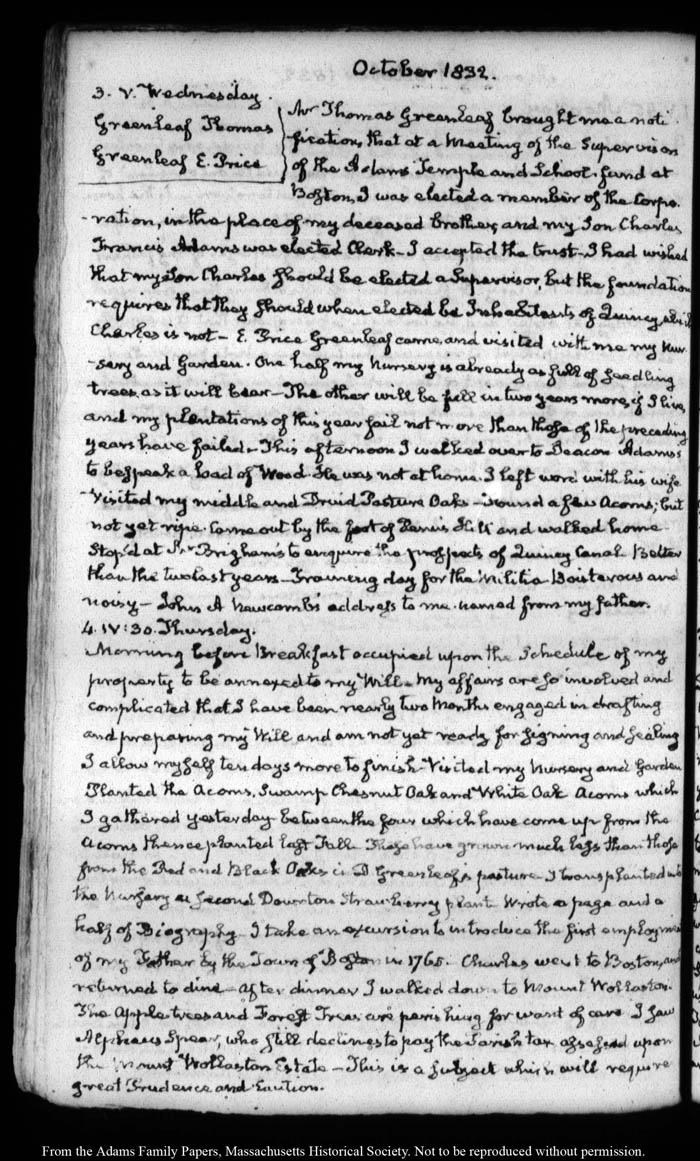 October 1832.
3. V. Wednesday.
Greenleaf Thomas
Greenleaf E. Price
Mr Thomas Greenleaf brought me a noti
fication, that at a Meeting of the Supervisors
of the Adams Temple and School fund at
Boston, I was elected a member of the Corpo-
-ration, in the place of my deceased brother, and my Son Charles
Francis Adams was elected Clerk — I accepted the trust — I had wished
that my Son Charles should be elected a Supervisor, but the foundation
requires that they should when elected be Inhabitants of Quincy, which
Charles is not — E. Price Greenleaf came, and visited with me my Nur-
-sery and Garden. One half my Nursery is already as full of seedling
trees, as it will bear — The other will be full in two years more, if I live,
and my plantations of this year fail not more than those of the preceding
years have failed — This afternoon I walked over to Deacon Adams's
to bespeak a load of Wood. He was not at home. I left word with his wife
Visited my middle and Druid Pasture Oaks — found a few Acorns; but
not yet ripe. Came out by the foot of Penn's Hill and walked home —
Stop'd at Mr Brigham's to enquire the prospects of Quincy Canal. Better
than the two last years — Training day for the Militia. Boisterous and
noisy — John A Newcomb's address to me. named from my father.
4. IV:30. Thursday.
Morning before Breakfast occupied upon the Schedule of my
property to be annexed to my Will. My affairs are so involved and
complicated that I have been nearly two Months engaged in drafting
and preparing my Will and am not yet ready for signing and sealing
I allow myself ten days more to finish. Visited my Nursery and Garden
Planted the Acorns, Swamp Chesnut Oak and White Oak Acorns which
I gathered yesterday between the four which have come up from the
Acorns thence planted last Fall. These have grown much less than those
from the Red and Black Oaks in D Greenleaf's pasture. I transplanted into
the Nursery a second Downton Strawberry plant. Wrote a page and a
half of Biography. I take an excursion to introduce the first employment
of my Father by the Town of Boston in 1765. Charles went to Boston, and
returned to dine — After dinner I walked down to Mount Wollaston.
The Apple trees and Forest Trees are perishing for want of care. I saw
Alpheus Spear, who still declines to pay the Parish tax assessed upon
the Mount Wollaston Estate — This is a subject which will require
great Prudence and Caution.
From the Adams Family Papers, Massachusetts Historical Society. Not to be reproduced without permission.